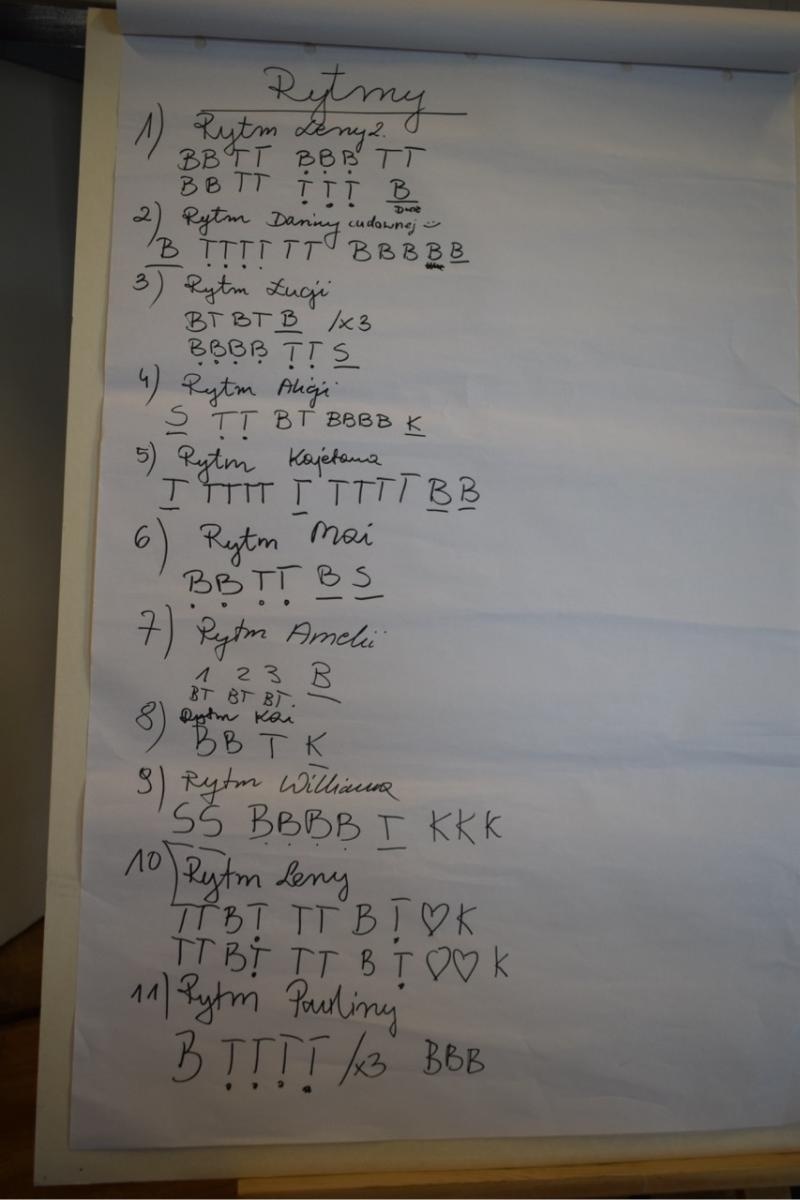 Rytmy
1) Rytm Leny 2.
BB TT BBB TT
BB TT TTT B
2) Rytm Daniny cudownej :)
B TTTT TT BBB B B
3) Rytm Łucji
BT BT B /x3
BBBB TT S
4) Rytm Alicji
S TT BT BBBB K
5) Rytm Kajetana
T TTTT T TTTT B B
6) Rytm Mai
BB TT B S
7) Rytm Amelii
1 2 3 B
BT BT BT.
8) Rytm Kai
BB T K
9) Rytm Williama
SS BBBB T KKK
10) Rytm Leny
TT BT TT B T ♡ K
TT BT TT B T ♡♡ K
11) Rytm Pauliny
B TTTT /x3 BBB